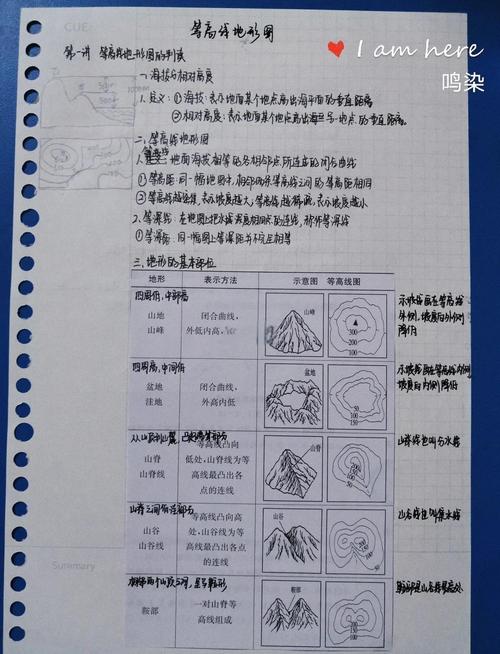 等高线地形图
I am here
鸣染
CUE:
第一讲 等高线地形图的判读
一、海拔与相对高度
1.定义:①海拔:表示地面某个地点高出海平面的垂直距离
②相对高度:表示地面某个地点高出另一地点的垂直距离。
二、等高线地形图
1.定义:地面海拔相等的各相邻点所连成的闭合曲线
①等高距:同一幅地图中,相邻两条等高线之间的等高距相同
②等高线越密集,表示坡度越大;等高线越稀疏,表示坡度越小
2.等深线:在地图上把水域深度相同点的连线,称作等深线
①等深距:同一幅图上等深距并不完全相等
三、地形的基本部位
地形 表示方法 示意图 等高线图
四周低,中部高
山地
山峰
闭合曲线,
外低内高,
山峰
300
200
100
示坡线画在等高线
外侧,坡度向外侧
降低
四周高,中间低
盆地
洼地
闭合曲线,
外高内低
盆地
50
100
150
坡度向内侧降低
山脊
山脊线
等高线凸向
低处,山脊线为等
高线最凸出各
点的连线
山脊
200
150
100
山脊线也叫分水线
山谷
山谷线
等高线凸向高
处,山谷线为等
高线最凸出各点
的连线
山谷
200
150
100
山谷线也叫集水线
鞍部
一对山脊等
高线组成
鞍部
200
150
100
鞍部是山谷线最高处
Summary